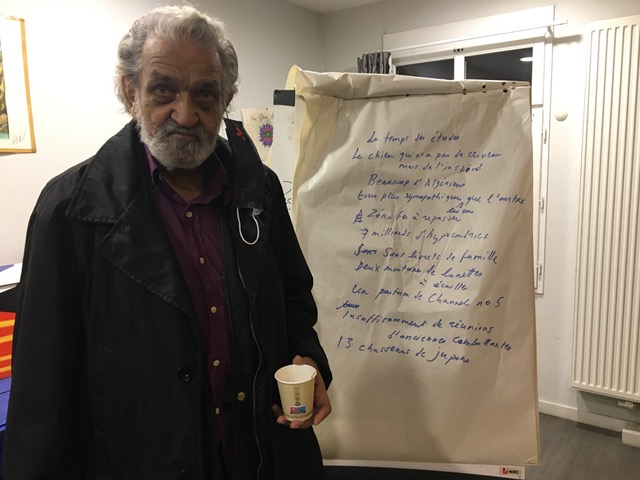 Le temps des études
Le chien qui n'a pas de cerveau
mais de l'inspiré
Beaucoup d'Algériens
tous plus sympathiques que l'autre
les uns
Zéro fer à repasser
7 milliards d'hypocondries
Sans livrets de famille
Deux montures de lunettes
à écaille
Un parfum de Channel no 5
Insuffisamment de réunions
d'anciennes combattantes
13 chasseurs de jupons
NOBO